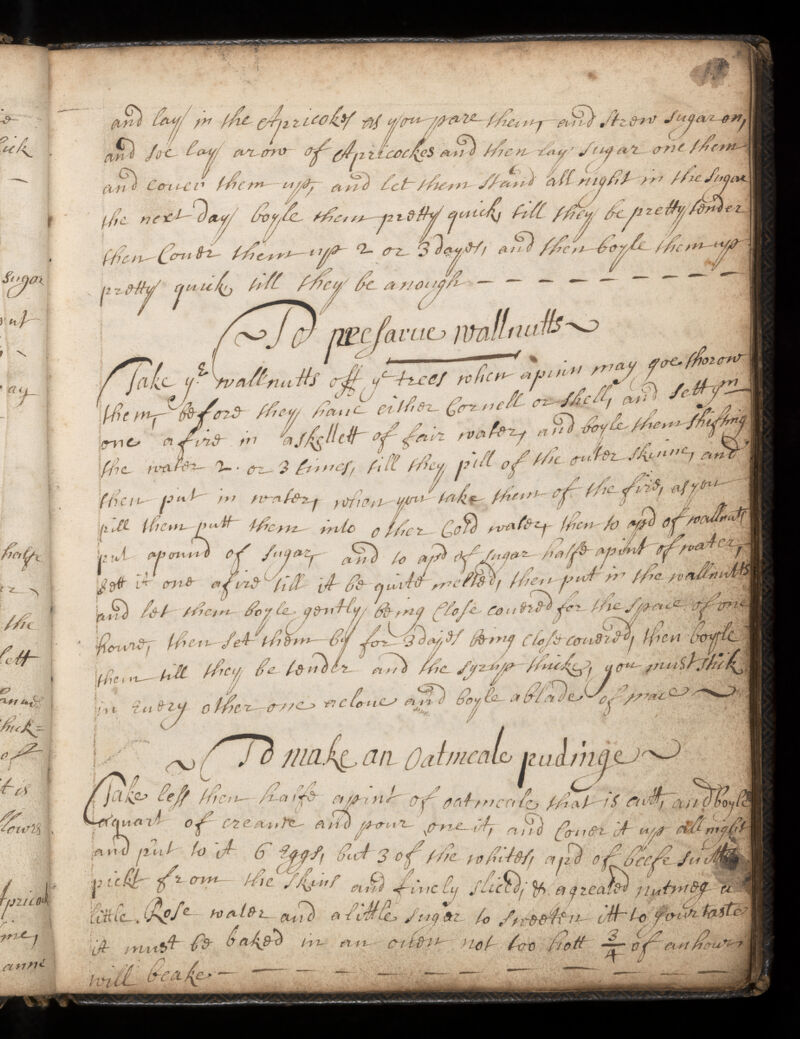 and lay in the Apricokes as you pare them, and strow sugar on,
and soe lay arow of Apricockes and then lay sugar one them
and couer them up, and let them stand all night in the sugar
the next day boyle them pretty quick, till they be pretty tender
then Couer them up 2 or 3 dayes, and then boyle them up
pretty quick till they be anough
To presarue wallnutts
Take ye wallnutts off ye trees when apinn may goe thorow
them, before they haue either Cornell or shell, and sett ym
one afire in askellett of fair water, and boyle them shifting
the water 2. or 3 times, till they pill of the outer skinne, and
then put in water, when you take them of the fire, as you
pill them putt them into other Cold water, then to apd of wallnuts
put apound of sugar, and to apd of sugar halfe apint of water,
sett it one afire till it be quite melted, then put in the wallnutts
and let them boyle gently being Close couered for the space of one
houre, then set them by for 3 dayes being close couered, then boyle
them till they be tender and the syrup thicke, you must stick
in Euery other one acloue and boyle ablade of mace
To make an oatmeale pudinge
Take less then halfe apint of oatmeale that is cutt, and boyle
aquart of creame and pour one it, and Couer it up all night
and put to it 6 Eggs, but 3 of the whites, apd of beefe suitt
pickt from the skins and finely sliced, & agreated nutmeg a
little Rose water and alittle suger to sweeten itt to your taste
it must be baked in an ouen not too hott 3/4 of an hour
will beake